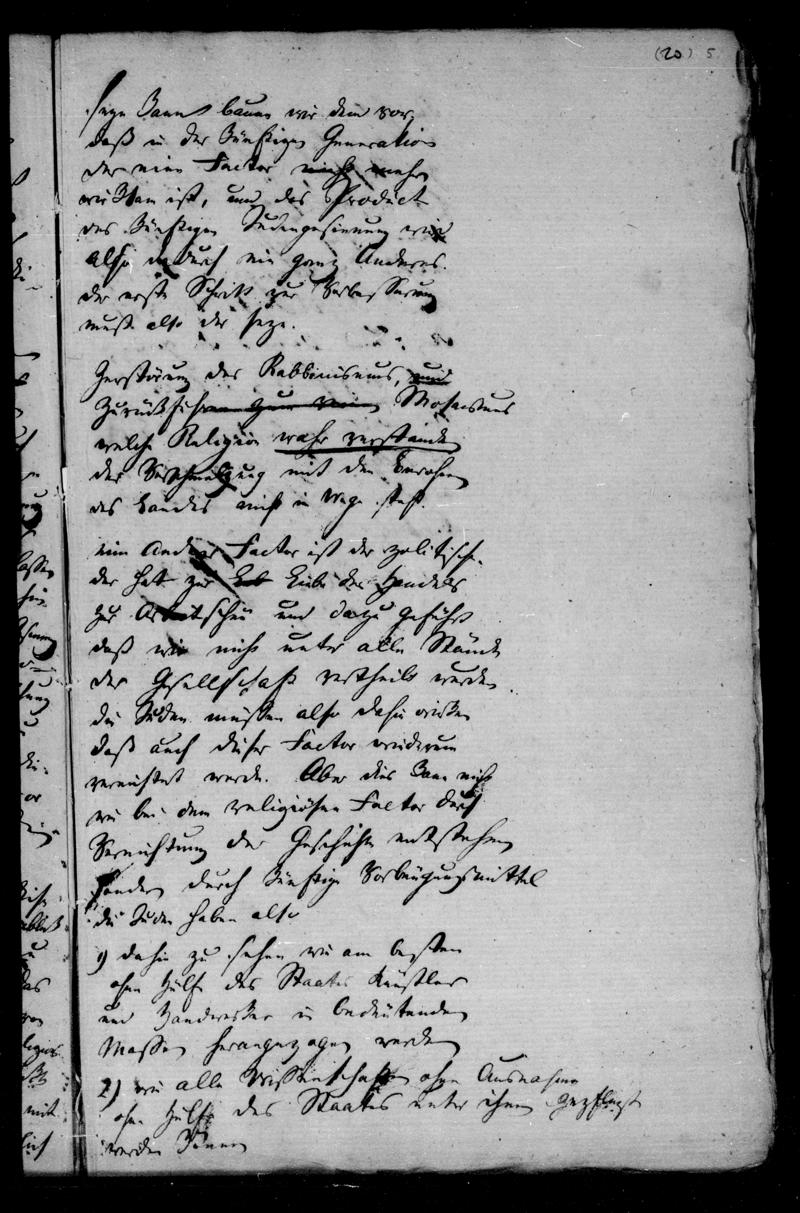 (20) 5
dann bauen wir dem vor,
daß in der künftigen Generation
der eine Factor nicht mehr
wirksam ist, und das Product
der künftigen Judengesinnung wird
also dadurch ein ganz Anderes.
der erste Schritt zur Verbesserung
muß also der seyn.
Zerstörung des Rabbinismus, und
Zurückführen zum reinen Mosaismus
welche Religion wahr verstanden
der Verschmelzung mit den Bewohnern
des Landes nicht im Wege steht.
ein Anderer Factor ist der politische.
der hat zur Liebe des Handels
zur Arbeitscheu und dazu geführt
daß wir nicht unter alle Stände
der Gesellschaft vertheilt wurden.
die Juden müssen also dahin wirken
daß auch dieser Factor wiederum
vernichtet werde. Aber dies kann nicht
wie bei dem religiösen Factor durch
Vernichtung der Geschichte entstehen
sondern durch künftige Vorbeugungsmittel
die Juden haben also
1) dahin zu sehen wie am besten
ohne Hülfe des Staates Künstler
und Handwerker in bedeutenden
Massen herangezogen werden
2) wie alle Wissenschaften ohne Ausnahme
ohne Hülfe des Staates unter ihnen gepflegt
werden können